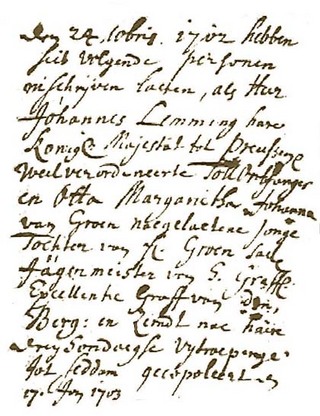 den 24. 10bris. 1702 hebben
sich volgende personen
inschrijven laeten, als Heer
Johannes Lemming hare
Konigl: Majestät tot Preussen
Weilverordeneerte Tollontfanger
en Otta Margaritha Johanna
van Groen naegelaetene jonge
Tochter van H: Groen Sale
Jägermeister van S. Graffl.
Excellentie Graff van den
Berg: en sem̄dt nae haire
dreij Sondaegse vytroepenge
tot geëopoleert en
17. Jan 1703